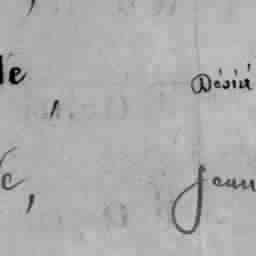 le, Désiré
e, Jean